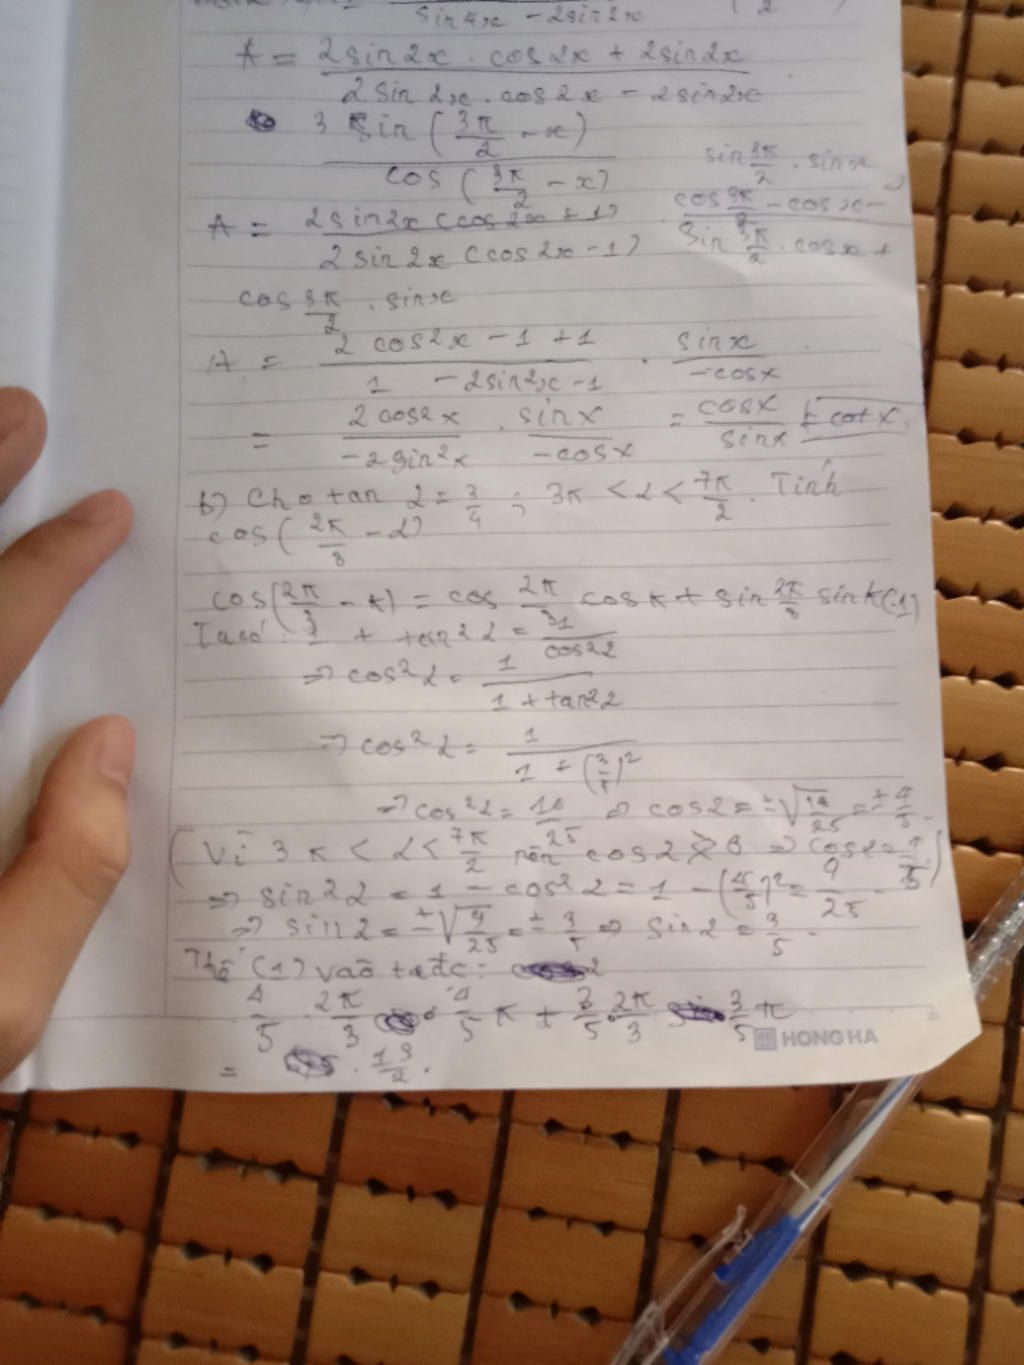 sin4x - 2sin2x
A = 2sin2x . cos2x + 2sin2x
2sin2x . cos2x - 2sin2x
3 sin ( 3π/2 - x)
cos ( 3π/2 - x)
sin 3π/2 . sinx
A = 2sin2x (cos2x + 1)
2sin2x (cos2x - 1)
cos 3π/2 - cosx -
sin 3π/2 . cosx +
cos 3π/2 . sinx
A = 2cos2x - 1 + 1 / 1 - 2sin2x - 1 . sinx / -cosx
= 2cos2x / -2sin²x . sinx / -cosx = cosx / sinx = cotx.
b) Cho tan 2 = 3/4 ; 3π < 2 < 7π/2 . Tính
cos( 2π/3 - 2)
cos( 2π/3 - x) = cos 2π/3 cosx + sin 2π/3 sinx (1)
Ta có: 1 + tan²2 = 1/cos²2
=> cos²2 = 1 / 1 + tan²2
=> cos²2 = 1 / 1 + (3/4)²
=> cos²2 = 16/25 => cos2 = ±√16/25 = ± 4/5.
(Vì 3π < 2 < 7π/2 nên cos2 > 0 => cos2 = 4/5)
=> sin²2 = 1 - cos²2 = 1 - (4/5)² = 9/25
=> sin2 = ±√9/25 = ± 3/5 => sin2 = 3/5.
Thế (1) vào tađc:
4/5 . 2π/3 . 4/5 π + 3/5 . 2π/3 3/5 π
= . 13/2.
HONG HA